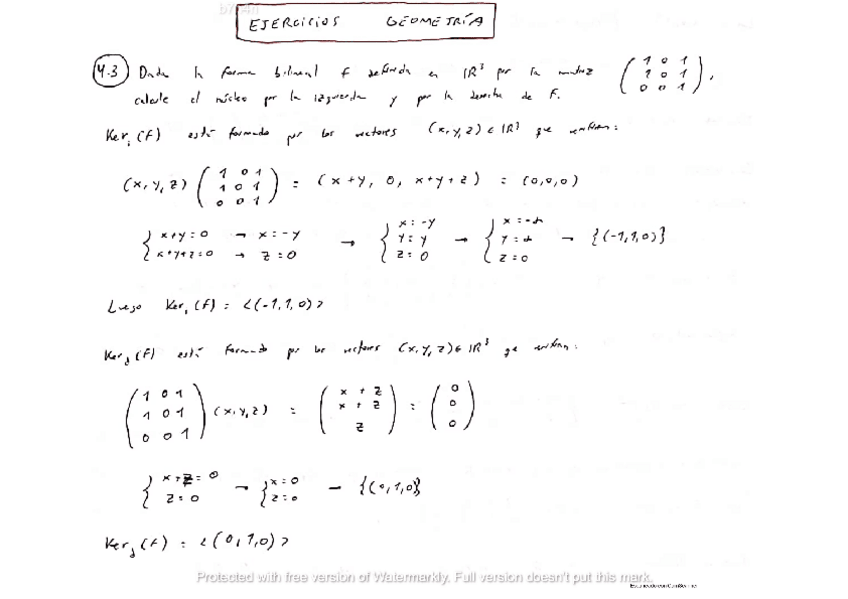 EJERCICIOS GEOMETRÍA
4.3 Dada la forma bilineal f definida en IR³ por la matriz (1 0 1
1 0 1
0 0 1),
calcule el núcleo por la izquierda y por la derecha de F.
Ker_i (f) está formado por los vectores (x,y,z) ∈ IR³ que verifican:
(x,y,z) (1 0 1
1 0 1
0 0 1) = (x+y, 0, x+y+z) = (0,0,0)
{ x+y=0 → x=-y
x+y+z=0 → z=0 → { x=-y
y=y
z=0 → { x=-α
y=α
z=0 → {(-1,1,0)}
Luego Ker_i (f) = <(-1,1,0)>
Ker_d (f) está formado por los vectores (x,y,z) ∈ IR³ que verifican:
(1 0 1
1 0 1
0 0 1) (x,y,z) = (x + z
x + z
z) = (0
0
0)
{ x+z=0
z=0 → { x=0
z=0 — {(0,1,0)}
Ker_d (f) = <(0,1,0)>
Protected with free version of Watermarkly. Full version doesn't put this mark.
Escaneado con CamScanner